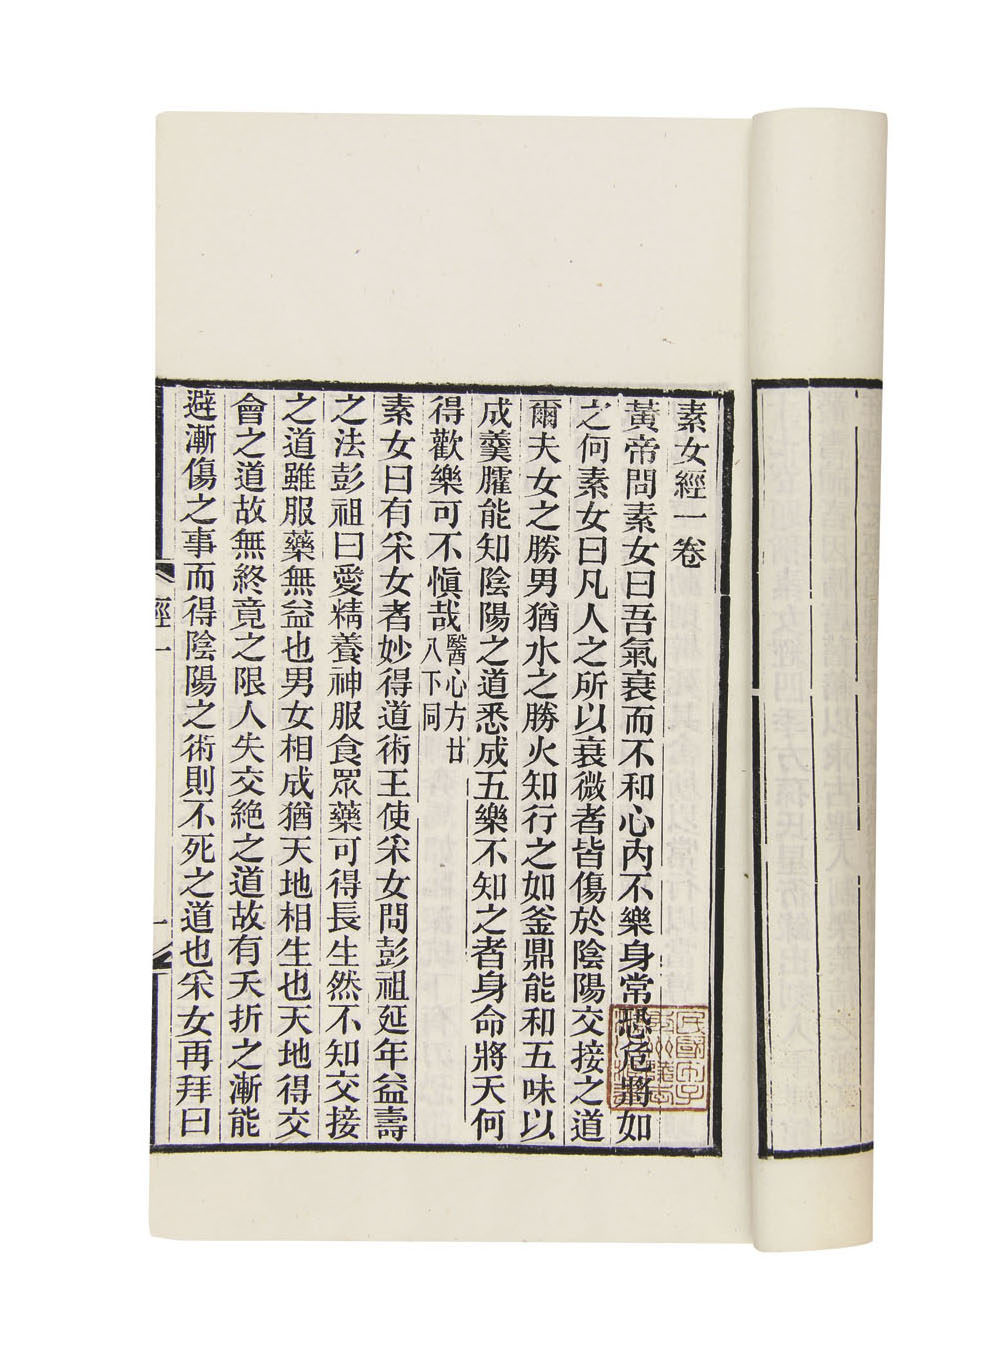 素女經一卷
黃帝問素女曰吾氣衰而不和心內不樂身常恐危將如
之何素女曰凡人之所以衰微者皆傷於陰陽交接之道
爾夫女之勝男猶水之勝火知行之如釜鼎能和五味以
成羹臛能知陰陽之道悉成五樂不知之者身命將夭何
得歡樂可不慎哉醫心方廿八下同
素女曰有采女者妙得道術王使采女問彭祖延年益壽
之法彭祖曰愛精養神服食眾藥可得長生然不知交接
之道雖服藥無益也男女相成猶天地相生也天地得交
會之道故無終竟之限人失交絶之道故有夭折之漸能
避漸傷之事而得陰陽之術則不死之道也采女再拜曰
經一
一